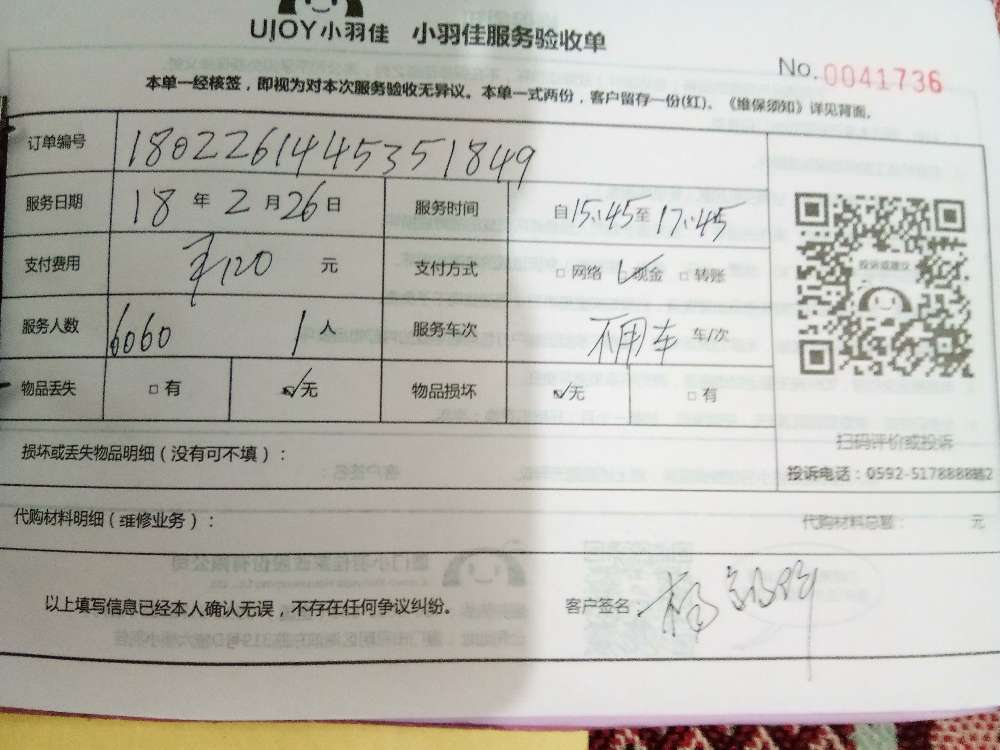 UJOY小羽佳 小羽佳服务验收单
No. 0041736
本单一经核签，即视为对本次服务验收无异议。本单一式两份，客户留存一份(红)、《维保须知》详见背面。
订单编号 18022614445351849
服务日期 18 年 2 月 26 日 服务时间 自 15:45 至 17:45
支付费用 120 元 支付方式 □ 网络 ☑ 现金 □ 转账
服务人数 6060 1 人 服务车次 不用车 车/次
物品丢失 □ 有 ☑ 无 物品损坏 ☑ 无 □ 有
投诉或建议
扫码评价或投诉
投诉电话：0592-5178888转2
损坏或丢失物品明细（没有可不填）：
代购材料明细（维修业务）： 代购材料总额： 元
以上填写信息已经本人确认无误，不存在任何争议纠纷。 客户签名： 杨